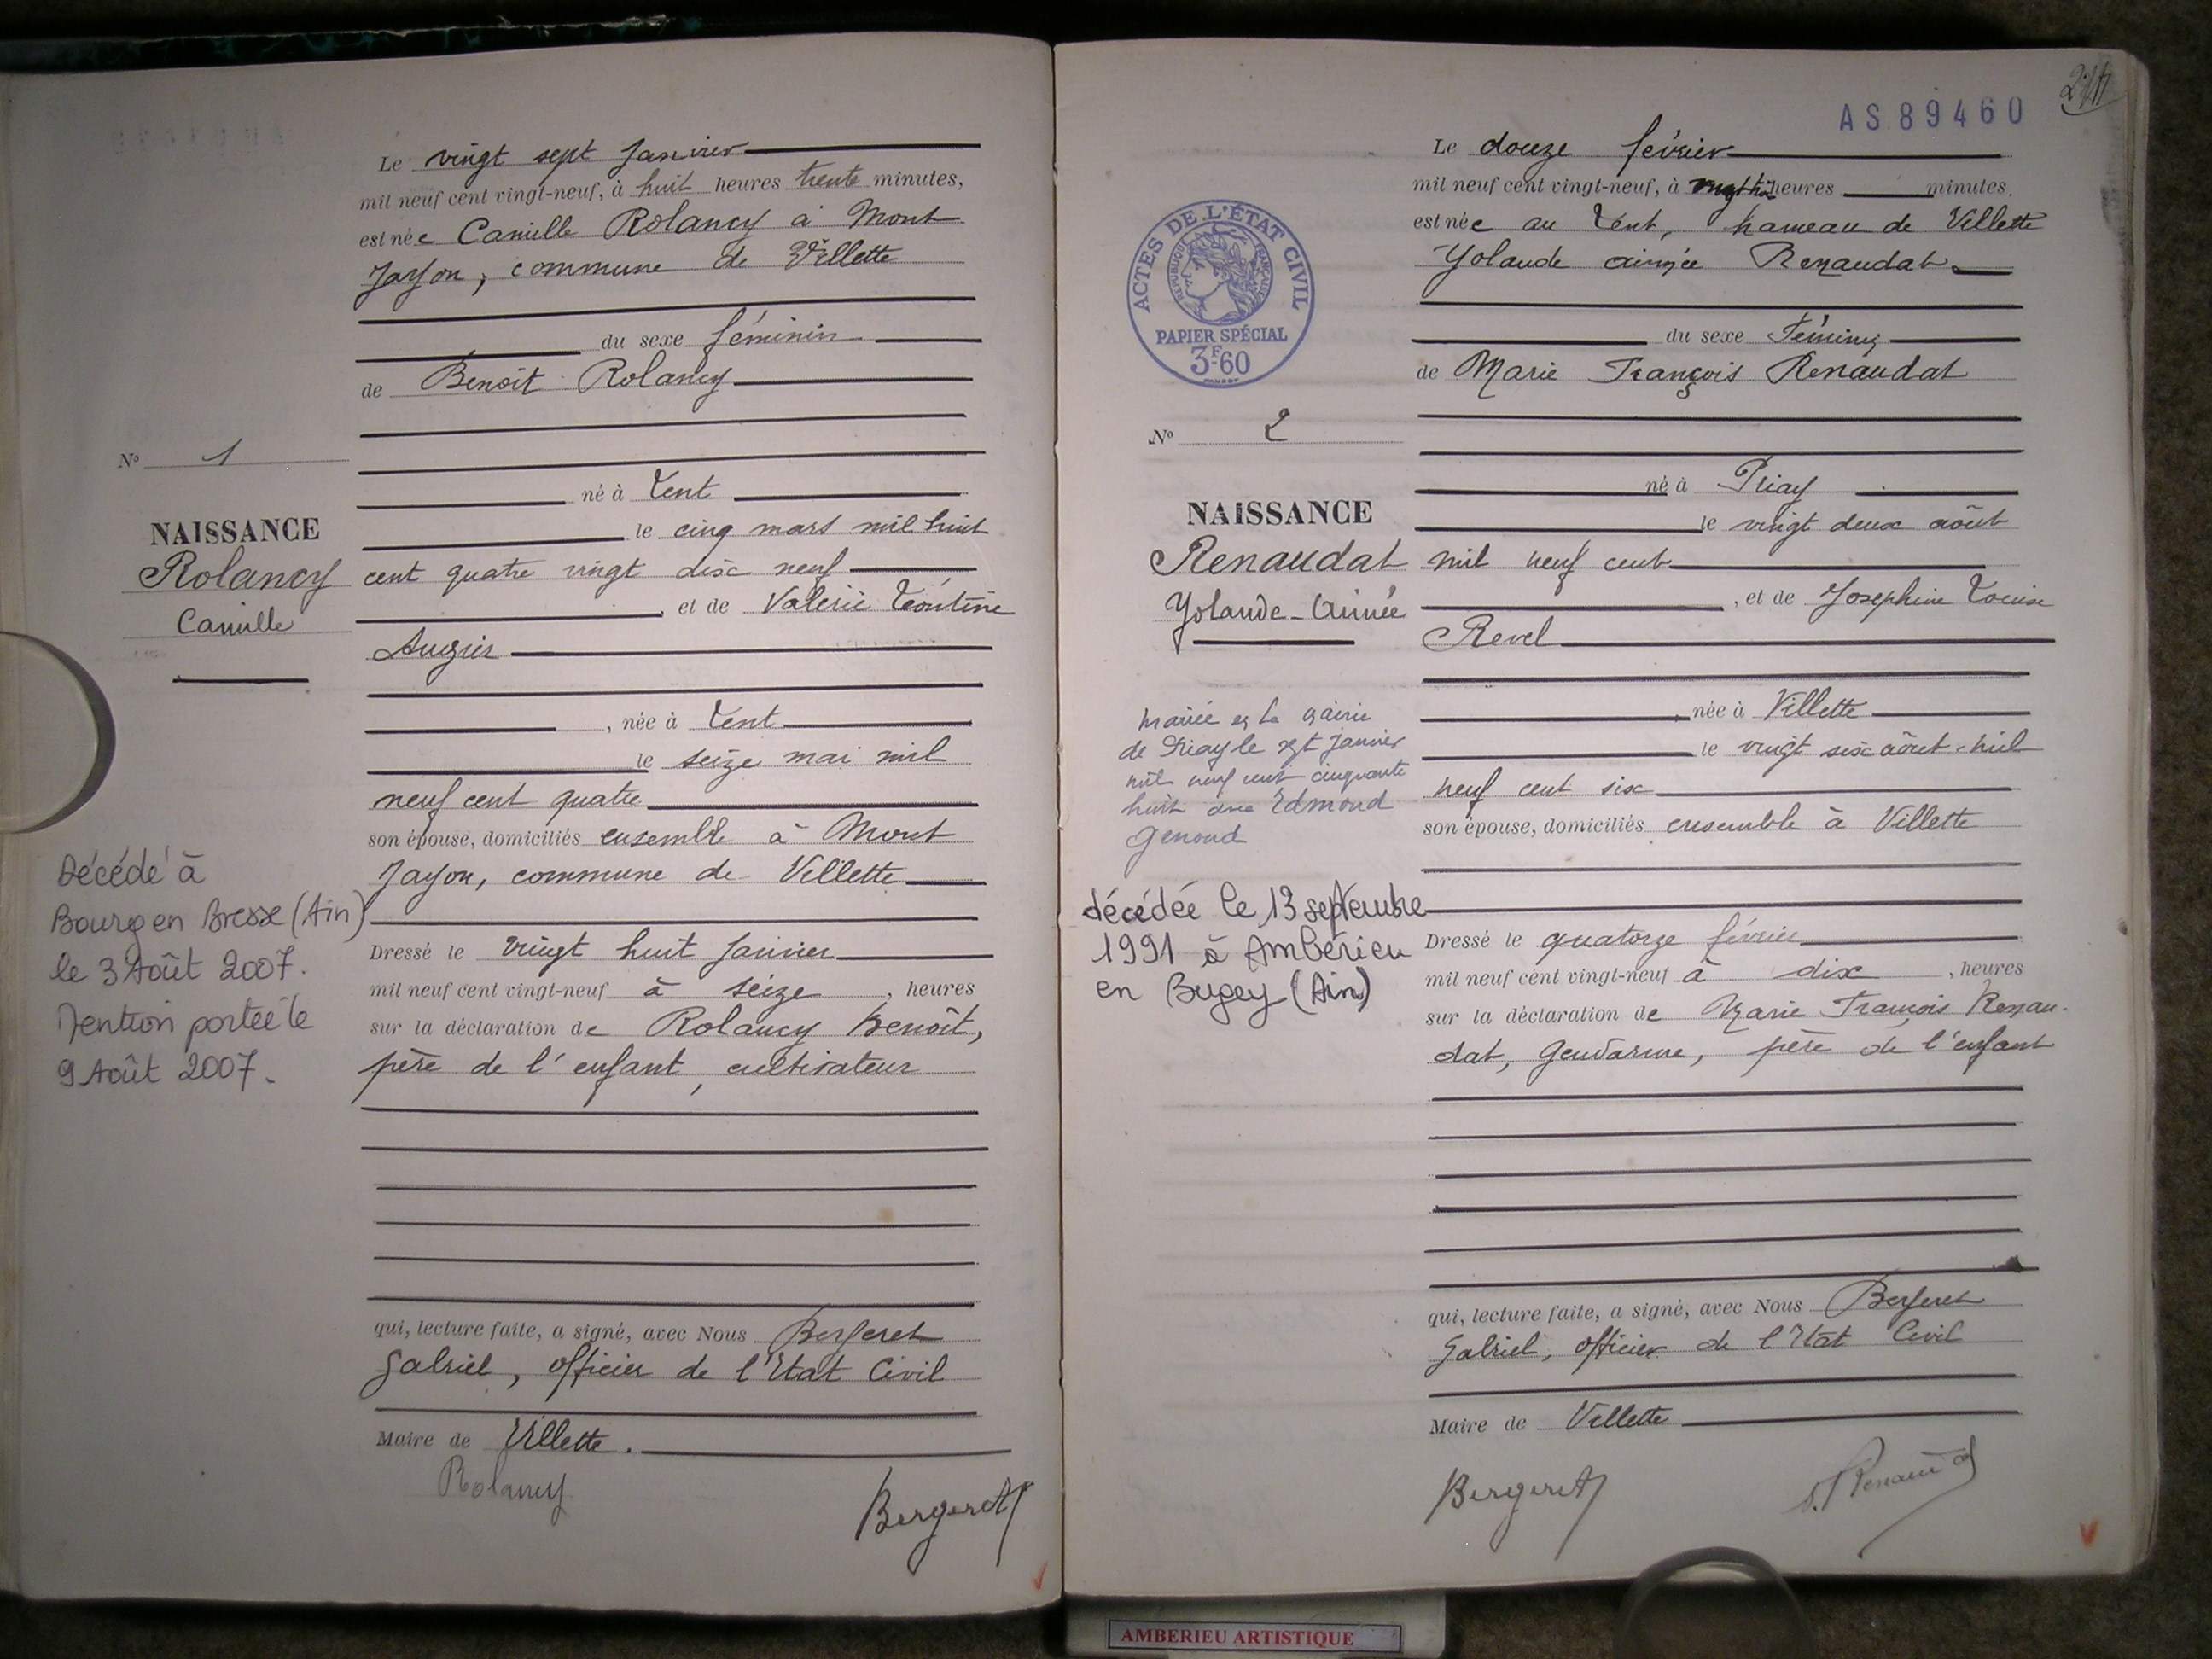 Le vingt sept Janvier
mil neuf cent vingt-neuf, à huit heures trente minutes,
est née Camille Rolancy à Mont
Jayon, commune de Villette
du sexe féminin
de Benoît Rolancy
N° 1
né à Tent
le cinq mars mil huit
NAISSANCE
Rolancy
Camille
cent quatre vingt dix neuf
et de Valérie Léontine
Augier
née à Tent
le seize mai mil
neuf cent quatre
son épouse, domiciliés ensemble à Mont
Jayon, commune de Villette
Décédé à
Bourg en Bresse (Ain)
le 3 Août 2007.
Mention portée le
9 Août 2007.
Dressé le vingt huit Janvier
mil neuf cent vingt-neuf à seize, heures
sur la déclaration de Rolancy Benoît,
père de l'enfant, cultivateur
qui, lecture faite, a signé, avec Nous Bergeret
Gabriel, officier de l'Etat Civil
Maire de Villette.
Rolancy
Bergeret
AS 89460
Le douze février
mil neuf cent vingt-neuf, à heures minutes.
est née au Tent, hameau de Villette
Yolande aimée Renaudat
ACTES DE L'ÉTAT CIVIL
RÉPUBLIQUE FRANÇAISE
PAPIER SPÉCIAL
3F60
du sexe Féminin
de Marie François Renaudat
N° 2
né à Priay
le vingt deux août
NAISSANCE
Renaudat
Yolande-Aimée
mil neuf cent
, et de Josephine Louise
Revel
, née à Villette
le vingt six août mil
neuf cent six
son épouse, domiciliés ensemble à Villette
mariée en la mairie
de Priay le sept janvier
mil neuf cent cinquante
huit avec Edmond
Genoud
décédée le 13 septembre
1991 à Ambérieu
en Bugey (Ain)
Dressé le quatorze février
mil neuf cent vingt-neuf à dix, heures
sur la déclaration de Marie François Renau-
dat, Gendarme, père de l'enfant
qui, lecture faite, a signé, avec Nous Bergeret
Gabriel, officier de l'Etat Civil
Maire de Villette
Bergeret
Renaudat
AMBERIEU ARTISTIQUE